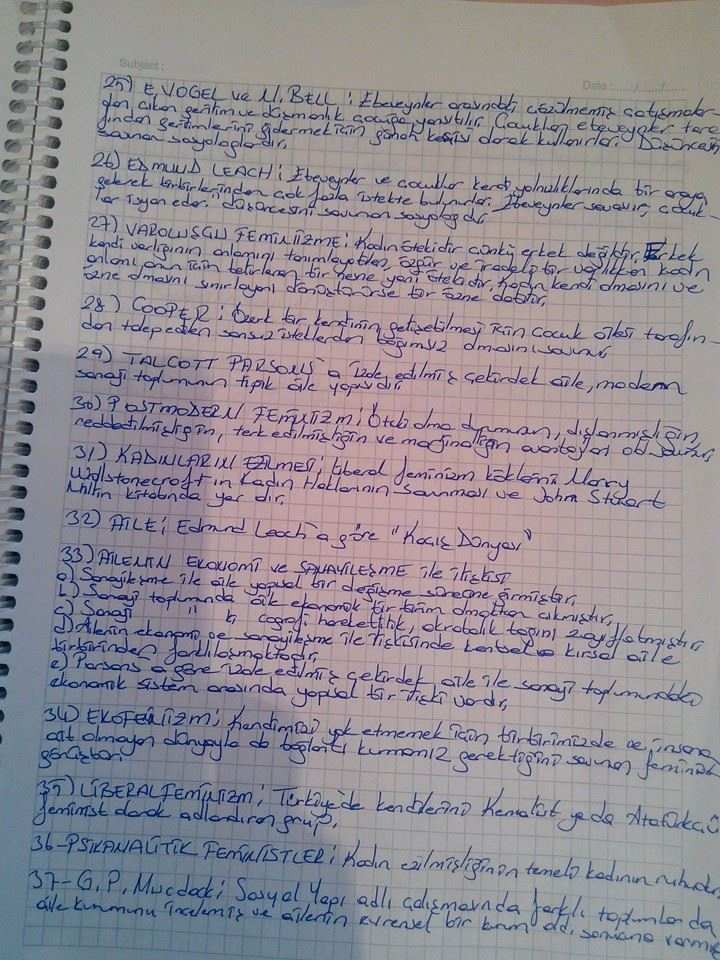 Subject :
Date : ....../....../......
25) E. VOGEL ve N. BELL : Ebeveynler arasındaki çözülmemiş çatışmalar-
dan çıkan gerilim ve düşmanlık çocuğa yansıtılır. Çocukları ebeveynler tara
fından gerilimlerini gidermek için günah keçisi olarak kullanırlar. Düşüncesini
savunan sosyologlardır.
26) EDMUND LEACH : Ebeveynler ve çocuklar kendi yalnızlıklarında bir araya
gelerek birbirlerinden çok fazla istekte bulunurlar. Ebeveynler savaşır, çocuk-
lar isyan eder. düşüncesini savunan sosyologdır.
27) VAROLUŞÇU FEMİNİZME : Kadın ötekidir çünkü erkek değildir. Erkek
kendi varlığının anlamını tanımlayabilen, özgür ve iradeli bir varlıkken kadın
anlamı onun için belirlenen bir nesne yani ötekidir. Kadın kendi olmasını ve
özne olmasını sınırlayanı dönüştürürse bir özne olabilir.
28) COOPER : Özerk bir kendinin gelişebilmesi için çocuk ailesi tarafın-
dan talep edilen sonsuz isteklerden bağımsız olmasını savunur
29) TALCOTT PARSONS'a izole edilmiş çekirdek aile, modern
sanayi toplumunun tipik aile yapısıdır.
30) POSTMODERN FEMİNİZM : Öteki olma durumunun, dışlanmışlığın,
reddedilmişliğin, terk edilmişliğin ve marjinalliğin avantajları old. savunur
31) KADINLARIN EZİLMESİ ; Liberal feminizm köklerini Marry
Wollstonecroft'in Kadın Haklarının Savunması ve John Stuart
Mill'in kitabında yer alır.
32) AİLE ; Edmund Leach'a göre "Kaçış Dünyası"
33) AİLENİN EKONOMİ ve SANAYİLEŞME ile İLİŞKİSİ
a) Sanayileşme ile aile yapısal bir değişme sürecine girmiştir.
b) Sanayi toplumunda aile ekonomik bir birim olmaktan çıkmıştır.
c) Sanayi " ki coğrafi hareketlilik, akrabalık bağını zayıflatmıştır
d) Ailenin ekonomi ve sanayileşme ile ilişkisinde kentsel ve kırsal aile
birbirinden farklılaşmaktadır.
e) Parsons'a göre izole edilmiş çekirdek aile ile sanayi toplumundaki
ekonomik sistem arasında yapısal bir ilişki vardır.
34) EKOFEMİNİZM ; Kendimizi yok etmemek için birbirimizde ve insana
ait olmayan dünyayla da bağlantı kurmamız gerektiğini savunan feminist
görüştür.
35) LİBERAL FEMİNİZM ; Türkiye'de kendilerini Kemalist ya da Atatürkçü
feminist olarak adlandıran grup.
36-PSİKANALİTİK FEMİNİSTLER ; Kadın ezilmişliğinin temeli kadının ruhunda.
37- G. P. Murdock ; Sosyal Yapı adlı çalışmasında farklı toplumlarda
aile kurumunu incelemiş ve ailenin evrensel bir kurum old. sonucuna varmış